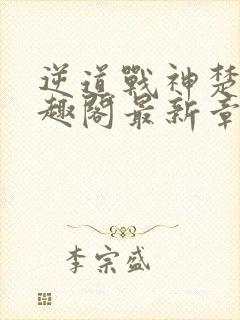 逆道戰神楚
趣閣最新章
李宗盛